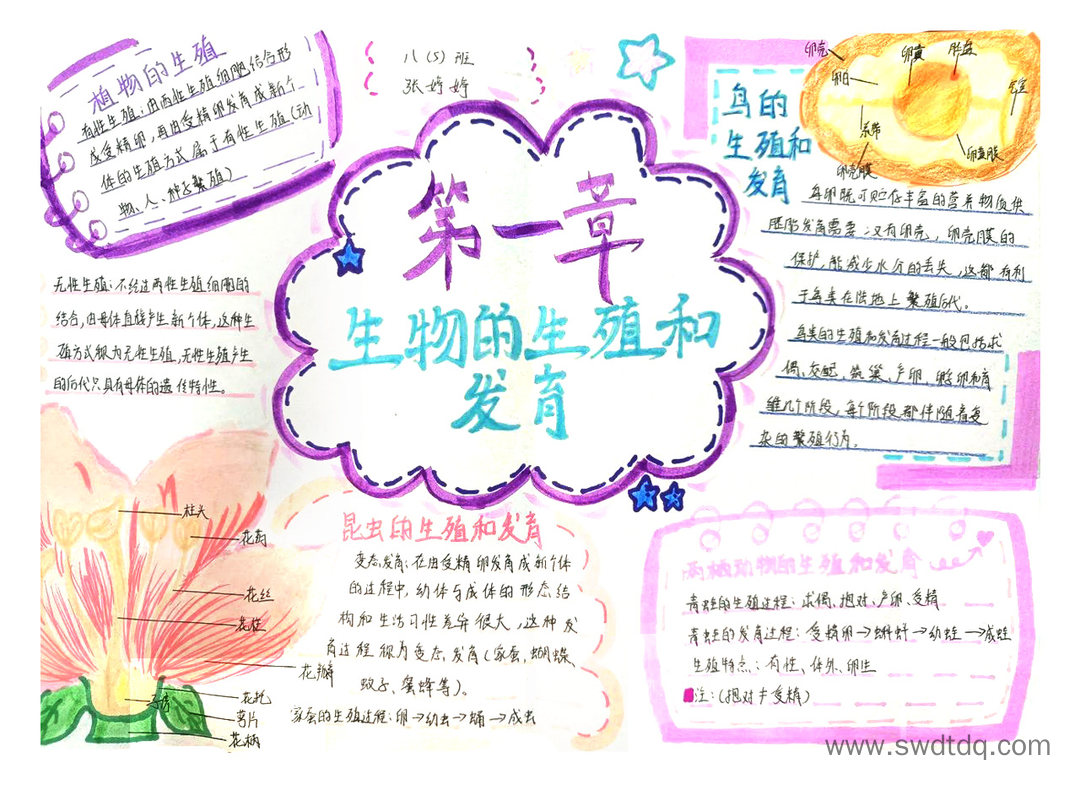 植物的生殖
有性生殖:由两性生殖细胞结合形
成受精卵,再由受精卵发育成新个
体的生殖方式属于有性生殖(动
物、人、种子繁殖)
无性生殖:不经过两性生殖细胞的
结合,由母体直接产生新个体,这种生
殖方式称为无性生殖,无性生殖产生
的后代只具有母体的遗传特性。
八(5)班
张婷婷
第一章
生物的生殖和
发育
鸟的
生殖和
发育
卵壳
卵白
卵黄
胚盘
气室
系带
卵壳膜
卵黄膜
鸟卵既可贮存丰富的营养物质供
胚胎发育需要,又有卵壳,卵壳膜的
保护,能减少水分的丢失,这都有利
于鸟类在陆地上繁殖后代。
鸟类的生殖和发育过程一般包括求
偶、交配、筑巢、产卵、孵卵和育
雏几个阶段,每个阶段都伴随着复
杂的繁殖行为。
柱头
花药
花丝
花柱
花瓣
子房
花托
萼片
花柄
昆虫的生殖和发育
变态发育:在由受精卵发育成新个体
的过程中,幼体与成体的形态结
构和生活习性差异很大,这种发
育过程称为变态发育(家蚕,蝴蝶,
蚊子、蜜蜂等)。
家蚕的生殖过程:卵→幼虫→蛹→成虫
两栖动物的生殖和发育
青蛙的生殖过程:求偶、抱对、产卵、受精
青蛙的发育过程:受精卵→蝌蚪→幼蛙→成蛙
生殖特点:有性、体外、卵生
注:(抱对≠受精)
www.swdtdq.com